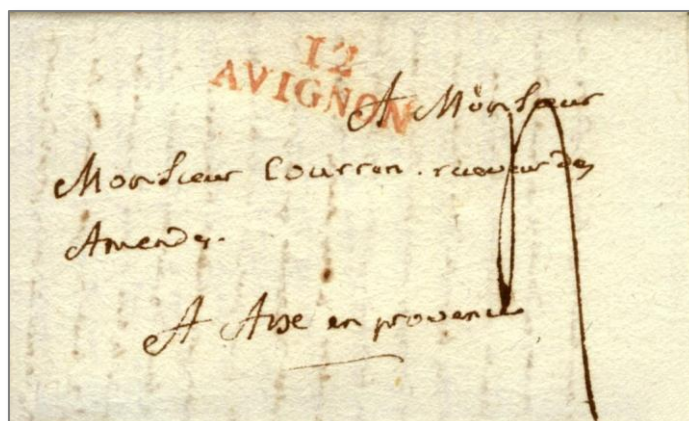 12
AVIGNON
A Monsieur
Monsieur Courron. receveur des
Amendes.
A Aix en provence